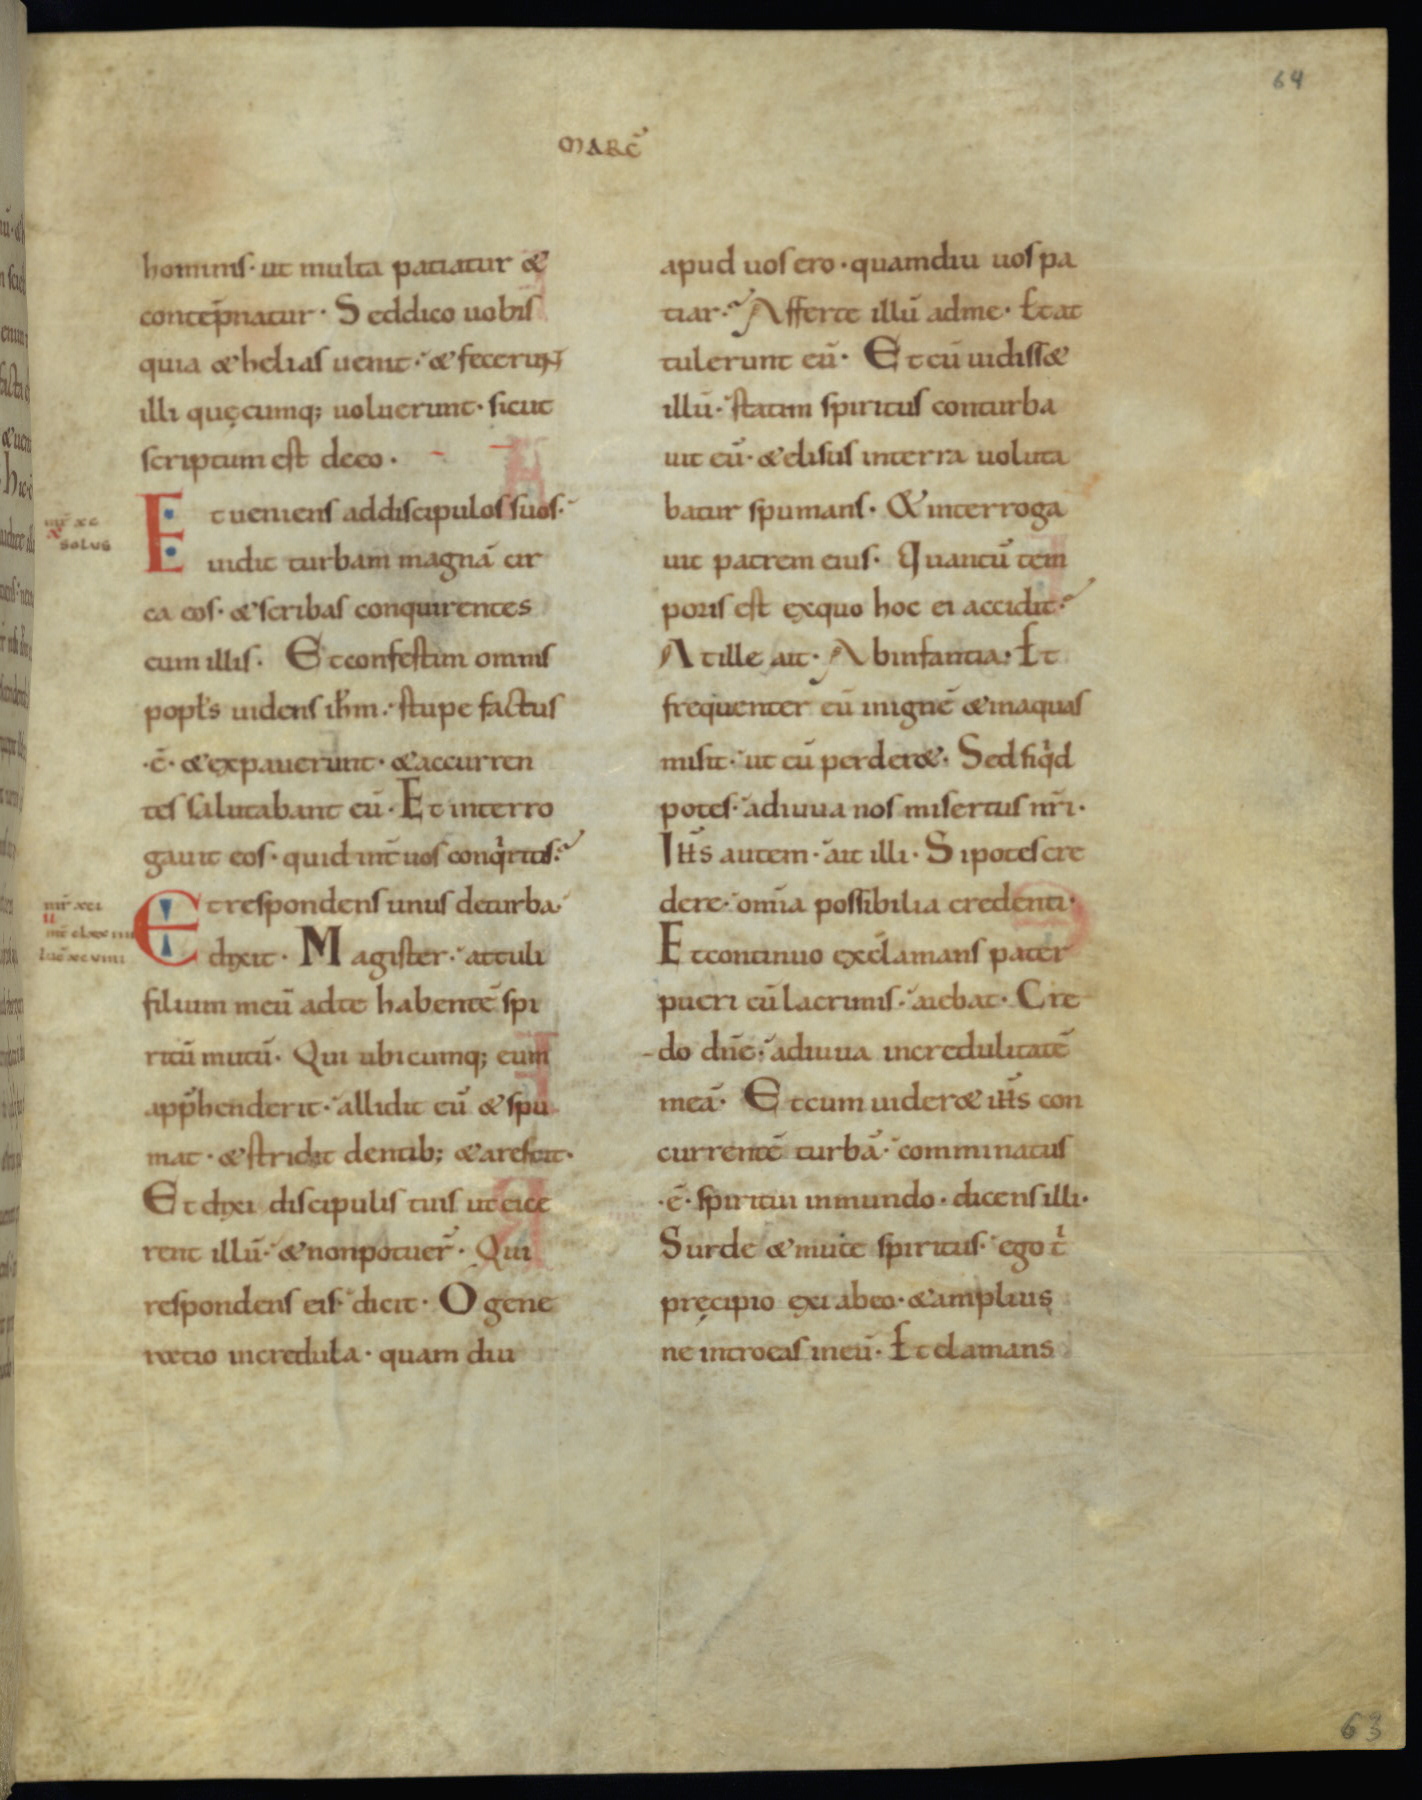 64
MARC̄
hominis· ut multa patiatur &
contep̄natur· Seddico uobis
quia &helias uenit·́ & fecerunt
illi quęcumq; uoluerunt· sicut
scriptum est deeo·
mr̄ xc
x
solus
Et ueniens addiscipulos suos·́
uidit turbam magnā cir
ca eos· &scribas conquirentes
cum illis· Etconfestim omnis
popl̄s uidens ih̄m·́ stupefactus
·ē· &expauerunt· &accurren
tes salutabant eū· Et interro
gauit eos· quid int̄ uos conqͥritis·̃
mr̄ xci
II
mt̄ clxxiiii
luc̄ xcviiii
Et respondens unus deturba·́
dixit· Magister·́ attuli
filium meū adte habentē spi
ritū mutū· Qui ubicumq; eum
app̄henderit·́ allidit eū & spu
mat· &stridet dentib; &arescit·
Et dixi discipulis tuis ut eice
rent illū·́ &nonpotuer̄· Qui
respondens eis·́ dicit· O gene
ratio incredula· quam diu
apud uos ero· quamdiu uos pa
tiar·̃ Afferte illū adme· Et at
tulerunt eū· Et cū uidiss&
illū·́ statim spiritus conturba
uit eū· &elisus interra uoluta
batur spumans· & interroga
uit patrem eius· Quantū tem
poris est exquo hoc ei accidit·̃
At ille ait· Abinfantia· Et
frequenter eū inignē &inaquas
misit·́ ut eū perder&· Sed siqͥd
potes·́ adiuua nos misertus nr̄i·
Ih̄s autem·́ ait illi· Si potes cre
dere·́ omīa possibilia credenti·
Et continuo exclamans pater
pueri cū lacrimis·́ aiebat· Cre
do dn̄e·́ adiuua incredulitatē
meā· Et cum uider& ih̄s con
currentē turbā·́ comminatus
·ē· spiritui inmundo· dicens illi·
Surde &mute spiritus·́ ego tͥ
pręcipio exi abeo· &amplius
ne introeas ineū· Et clamans
63